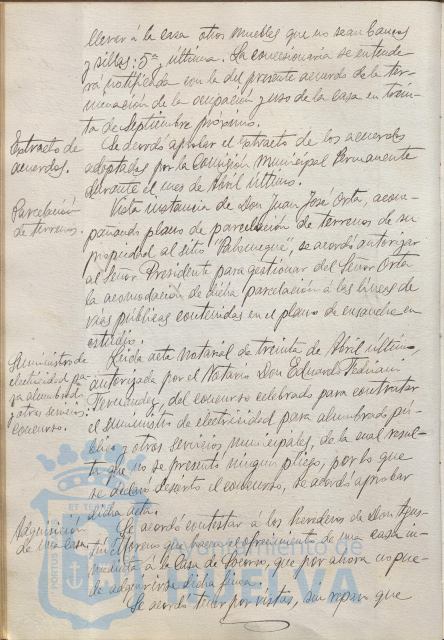 llevar á la casa otros muebles que no sean camas
y sillas: 5ª y última. La concesionaria se entende-
rá notificada con la del presente acuerdo de la ter-
minación de la ocupación y uso de la casa en trein-
ta de septiembre próximo.
Extracto de
acuerdos.
Se acordó aprobar el extracto de los acuerdos
adoptados por la Comisión Municipal Permanente
durante el mes de Abril último.
Parcelación
de terrenos.
Vista instancia de Don Juan José Orta, acom-
pañando plano de parcelación de terrenos de su
propiedad al sitio se acordó autorizar
al Señor Presidente para gestionar del Señor Orta
la acomodación de dicha parcelación á las líneas de
vías públicas contenidas en el plano de ensanche en
estudio.
Suministro de
electricidad pa-
ra alumbrado
y otros servicios:
concurso.
Leida acta notarial de treinta de Abril último,
autorizada por el Notario Don Eduardo
Fernandez, del concurso celebrado para contratar
el suministro de electricidad para alumbrado pú-
blico y otros servicios municipales, de la cual resul-
ta que no se presentó ningun pliego, por lo que
se declaró desierto el concurso, se acordó aprobar
dicha acta.
Adquisición
de una casa.
Se acordó contestar á los herederos de Don Agus-
tín Moreno que hacen ofrecimiento de una casa in-
mediata á la Casa de Socorro, que por ahora no pue-
de adquirirse dicha finca.
Se acordó tener por vistas, sin reparo que
Ayuntamiento de
HUELVA